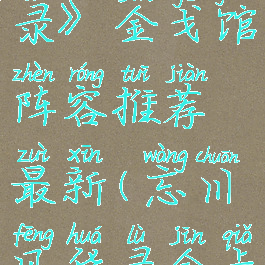 录》金戈馆
zhèn róng tuī jiàn
阵容推荐
zuì xīn wàng chuān
最新(忘川
fēng huá lù jīn
风华录金